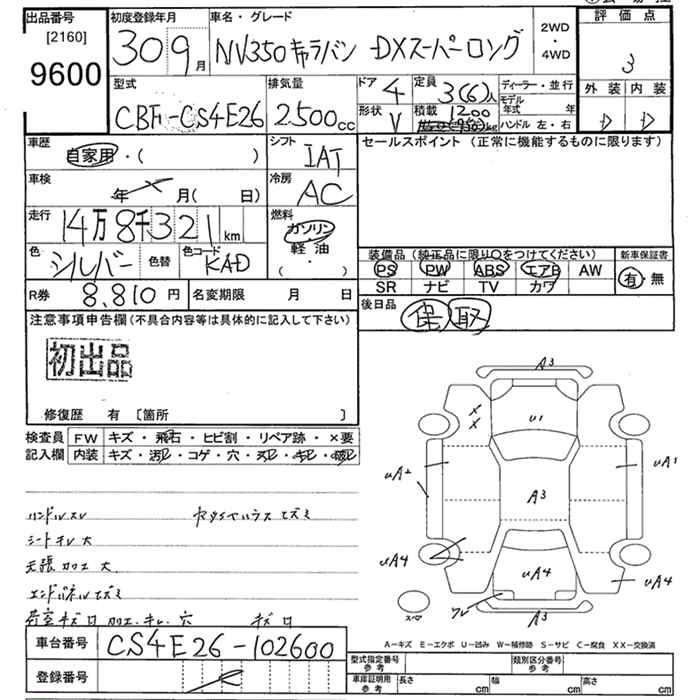 出品番号 [2160] 9600
初度登録年月 30 9月
車名・グレード NV350キャラバン DXスーパーロング
2WD・4WD
評価点 3
型式 CBF-CS4E26
排気量 2500cc
ドア 4
定員 3(6)人
形状 V
積載 1200
kg
ディーラー・並行
モデル年式 年
ハンドル 左・右
外装 D
内装 D
車歴 自家用・( )
シフト IAT
セールスポイント (正常に機能するものに限ります)
車検 年 月( 日)
冷房 AC
走行 14万8千321km
燃料 ガソリン・軽油・( )
色 シルバー
色替
色コード KAD
装備品 (純正品に限り○をつけてください)
新車保証書 有・無
PS PW ABS エアB AW
SR ナビ TV カワ
R券 8,810円
名変期限 月 日
後日品 保 取
注意事項申告欄(不具合内容等は具体的に記入して下さい)
初出品
修復歴 有 [箇所 ]
検査員記入欄
FW キズ・飛石・ヒビ割・リペア跡・×要
内装 キズ・汚レ・コゲ・穴・スレ・キレ・破レ
ハンドルスレ
シートキレ大
天張加工大
A3
U1
A3
UA4
A3
UA2
UA1
UA4
UA4
スペア
車台番号 CS4E26-102600
登録番号
A-キズ E-エクボ U-凹み W-補修跡 S-サビ C-腐食 XX-交換済
型式指定番号参考
類別区分番号参考
車庫証明用参考 長さ cm 幅 cm 高さ cm